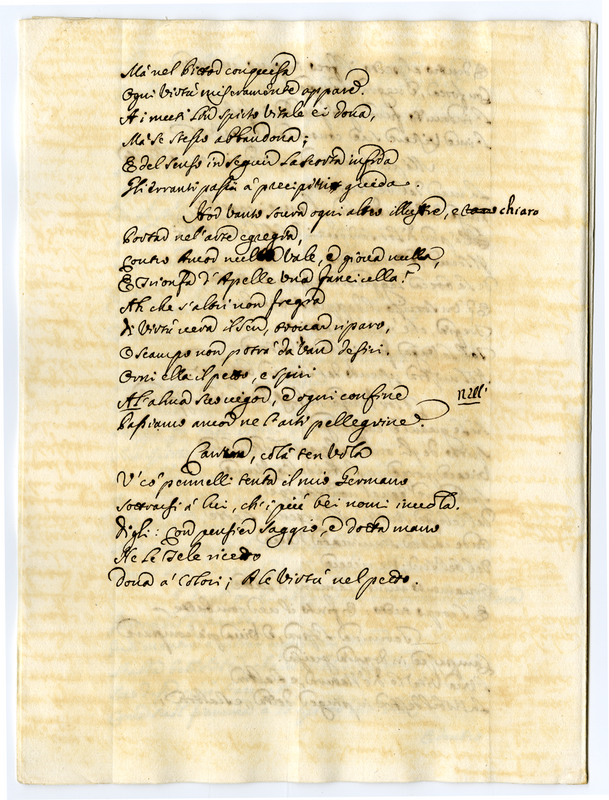 Mà nel Pittor conquisa
Ogni virtù miseramente appare.
A i muti lin spirto vitale ei dona,
Mà se stesso abbandona;
E del senso in seguir la scorta infida
Gli erranti passi à precipitii guida.
Hor vanto sovra ogni altro illustre, e chiaro
Portar nel'arte egregia,
Contro Amor vale, e giova nulla,
E trionfa d'Apelle una fanciulla?
Ah che s'altri non fregia
Di virtù vera il sen, trovar riparo,
O scampo non potrà da van desiri.
Orni ella il petto, e spiri
A l'alma suo vigor, e d'ogni confine
nell'
Passiamo ancor ne l'arti pellegrine.
Canzon, colà ten vola
V' co' pennelli tenta il mio Germano
Sottrarsi à lui, ch'i più bei nomi invola.
Digli: Con pensier saggio, e dotta mano
Ne le tele ricetto
Dona à colori; A le virtù nel petto.